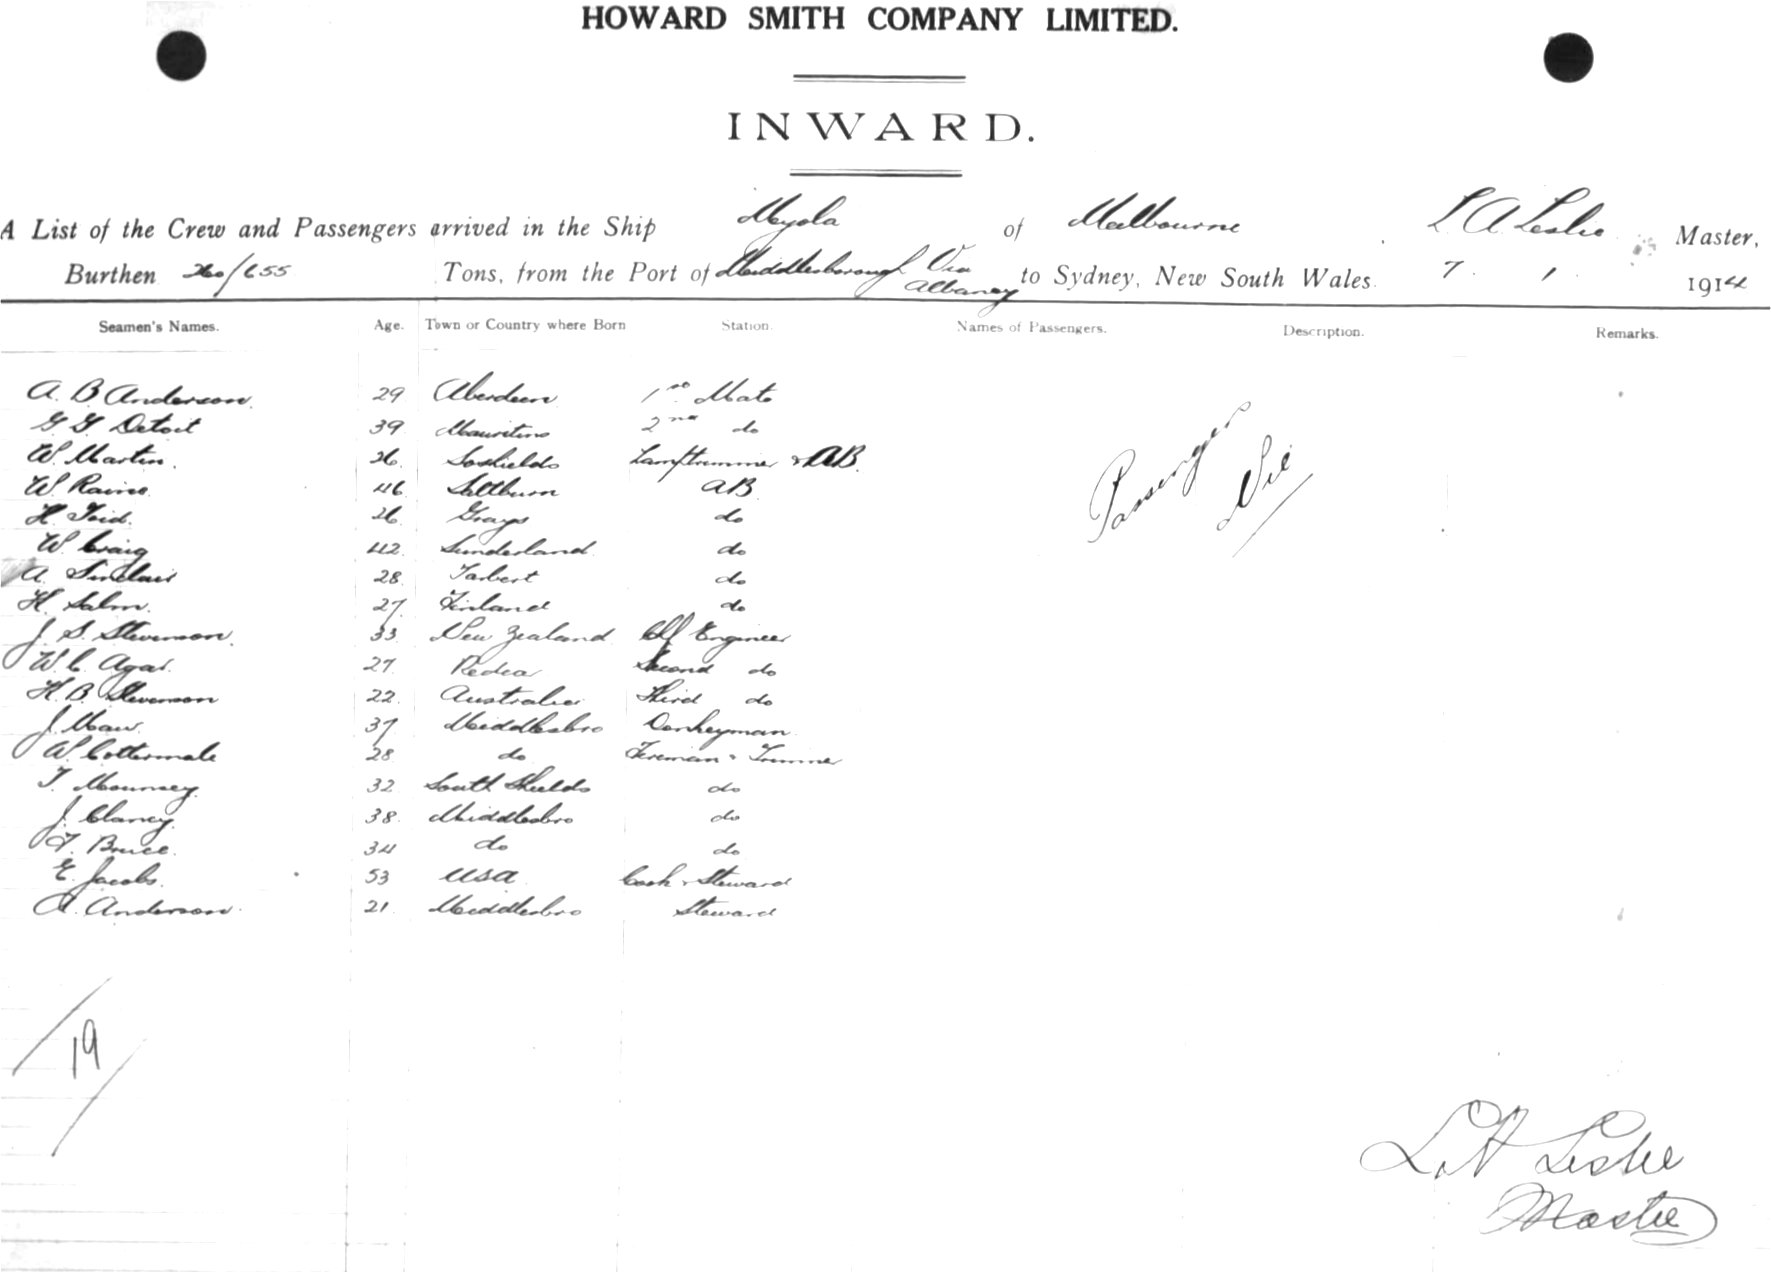 HOWARD SMITH COMPANY LIMITED.
INWARD.
A List of the Crew and Passengers arrived in the Ship Myola of Melbourne L A Leslie Master,
Burthen 260/655 Tons, from the Port of Middlesborough Via Albaney to Sydney, New South Wales. 7. 1. 1914
Seamen's Names. Age. Town or Country where Born Station. Names of Passengers. Description. Remarks.
A. B Anderson. 29 Aberdeen 1st Mate
G G Detoit 39 Mauritius 2nd do
W. Martin. 26. Soshields Lamptrimmer & AB.
W. Raine. 46 Saltburn AB
H. 26 Grays do
W. Craig 42. Sunderland. do
A. Sinclair 28. Tarbert do
H. Salm. 27. Finland do
J. S. Stevenson. 33. New Zealand. Engineer
W. C. Agar. 27. Second do
H. B. Stevenson 22. Australia. Third do
J. Maw. 37 Middlesbro Donkeyman.
W. 28. do. Fireman & Trimmer
T. Mounsey. 32 South Shields do
J. Clancy. 38. Middlesbro do
T. Bruce. 34 do do
E. Jacobs. 53 USA. Cook & Steward
A. Anderson. 21. Middlesbro Steward
Passengers Nil
19
L. A Leslie
Master